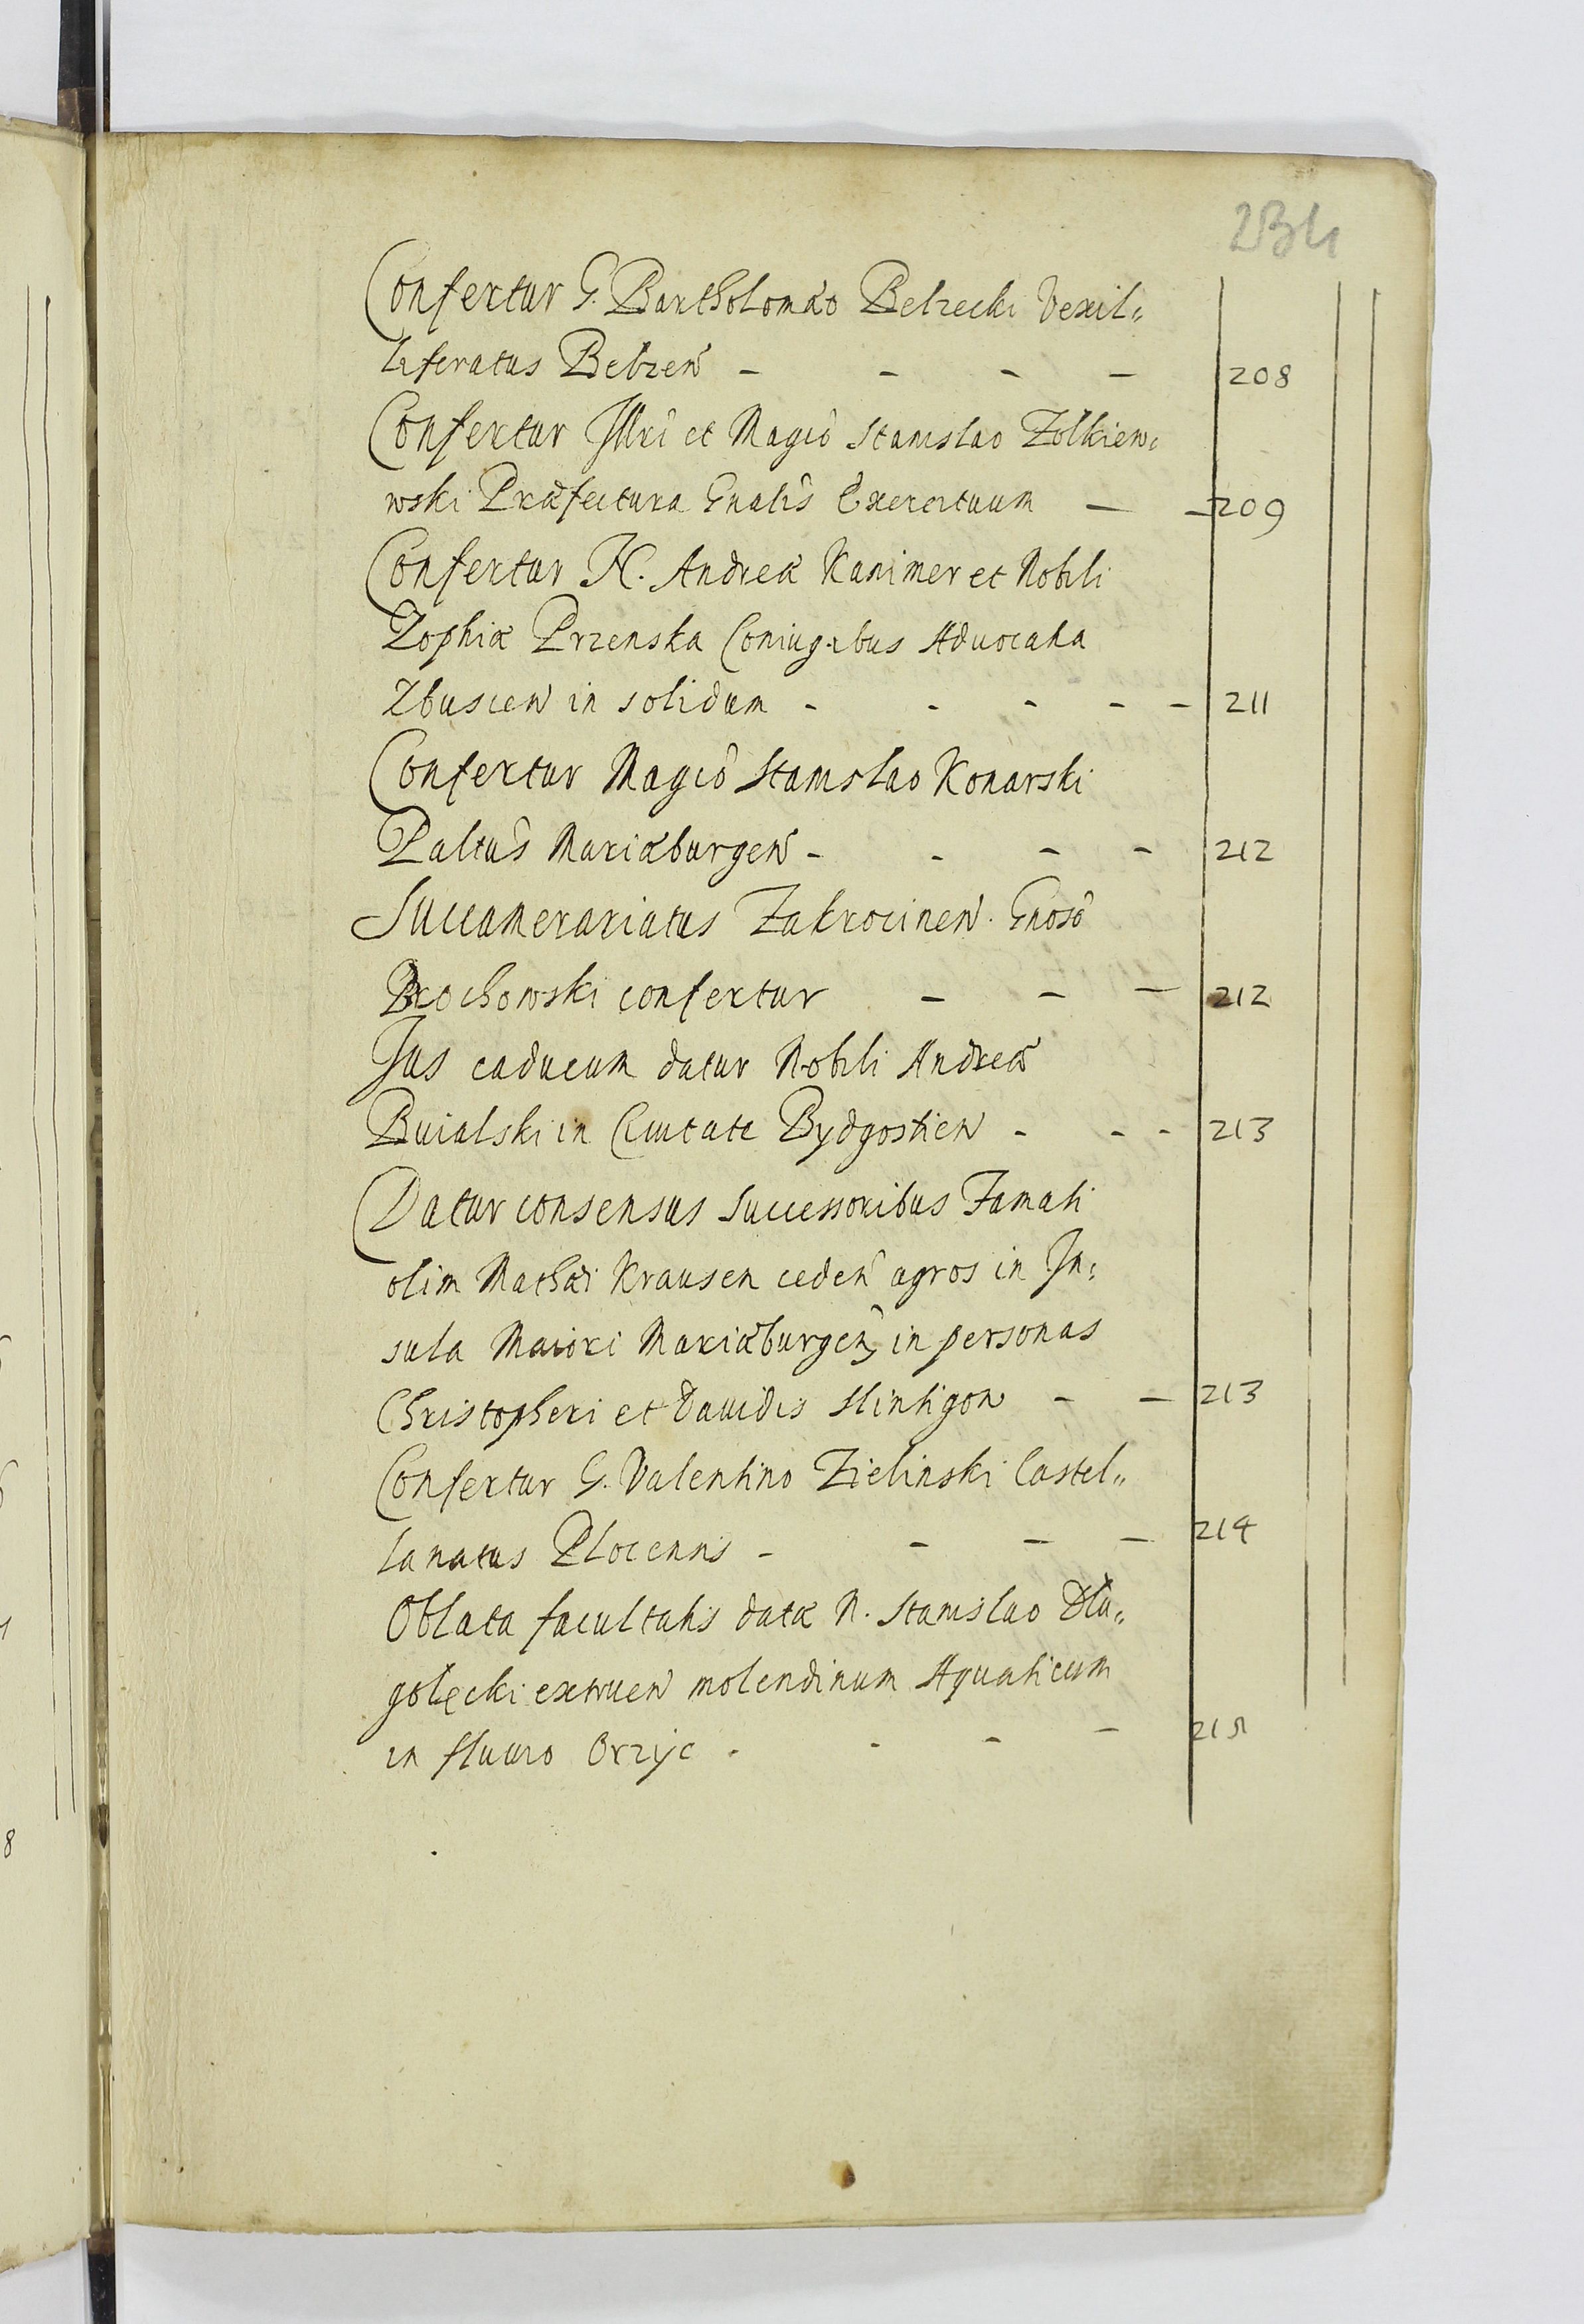 234
Confertur G. Bartholomæo Belzecki Vexil„
liferatus Belzen̄ - - - - 208
Confertur Illri et Magco Stanislao Zołkiew„
wski Præfectura Gnalis Exercituum - - 209
Confertur N. Andreæ Kanimer et Nobili
Zophiæ Przenska Coniugibus Advocatia
in solidum - - - - - 211
Confertur Magco Stanislao Konarski
Paltus Mariæburgen̄ - - - - 212
Succamerariatus Zakrocinen̄. Gnoso
Prochowski confertur - - - 212
Jus caducum datur Nobili Andreæ
Buialski in Ciuitate Bydgostien̄ - - - 213
Datur consensus successoribus Famati
olim Mathæi Krausen ceden̄ agros in In„
sula Maiori Mariæburgen̄, in personas
Christopheri et Dauidis - - 213
Confertur G. Valentino Zielinski Castel„
lanatus Plocensis - - - - 214
Oblata facultatis datæ N. Stanislao Dłu„
golęcki extruen̄ molendinum Aquaticum
in fluuio Orzyc - - - - 215
8